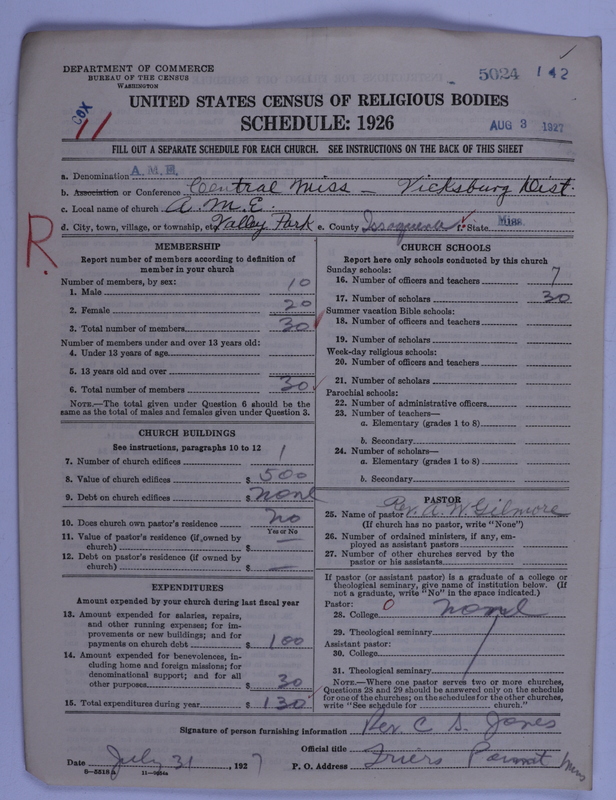 DEPARTMENT OF COMMERCE
BUREAU OF THE CENSUS
WASHINGTON
5024 142
UNITED STATES CENSUS OF RELIGIOUS BODIES
SCHEDULE: 1926
COX
11
AUG 3 1927
FILL OUT A SEPARATE SCHEDULE FOR EACH CHURCH. SEE INSTRUCTIONS ON THE BACK OF THIS SHEET
a. Denomination A.M.E.
b. Association or Conference Central Miss — Vicksburg Dist.
c. Local name of church A.M.E.
d. City, town, village, or township, etc. Valley Park e. County Issaquena f. State Miss.
R.
MEMBERSHIP
Report number of members according to definition of
member in your church
Number of members, by sex:
1. Male 10
2. Female 20
3. Total number of members 30
Number of members under and over 13 years old:
4. Under 13 years of age
5. 13 years old and over
6. Total number of members 30
NOTE.—The total given under Question 6 should be the
same as the total of males and females given under Question 3.
CHURCH BUILDINGS
See instructions, paragraphs 10 to 12
7. Number of church edifices 1
8. Value of church edifices $ 500
9. Debt on church edifices $ none
10. Does church own pastor's residence no
Yes or No
11. Value of pastor's residence (if owned by
church) $ —
12. Debt on pastor's residence (if owned by
church) $ —
EXPENDITURES
Amount expended by your church during last fiscal year
13. Amount expended for salaries, repairs,
and other running expenses; for im-
provements or new buildings; and for
payments on church debt $ 100
14. Amount expended for benevolences, in-
cluding home and foreign missions; for
denominational support; and for all
other purposes $ 30
15. Total expenditures during year $ 130
CHURCH SCHOOLS
Report here only schools conducted by this church
Sunday schools:
16. Number of officers and teachers 7
17. Number of scholars 30
Summer vacation Bible schools:
18. Number of officers and teachers
19. Number of scholars
Week-day religious schools:
20. Number of officers and teachers
21. Number of scholars
Parochial schools:
22. Number of administrative officers
23. Number of teachers—
a. Elementary (grades 1 to 8)
b. Secondary
24. Number of scholars—
a. Elementary (grades 1 to 8)
b. Secondary
PASTOR
25. Name of pastor Rev. A. W. Gilmore
(If church has no pastor, write "None")
26. Number of ordained ministers, if any, em-
ployed as assistant pastors
27. Number of other churches served by the
pastor or his assistants
If pastor (or assistant pastor) is a graduate of a college or
theological seminary, give name of institution below. (If
not a graduate, write "No" in the space indicated.)
Pastor: 0
28. College none
29. Theological seminary
Assistant pastor:
30. College
31. Theological seminary
NOTE.—Where one pastor serves two or more churches,
Questions 28 and 29 should be answered only on the schedule
for one of the churches; on the schedules for the other churches,
write "See schedule for church."
Signature of person furnishing information Rev. C. S. Jones
Official title
Date July 31, 1927 P. O. Address Friers Point Miss
8—5518a